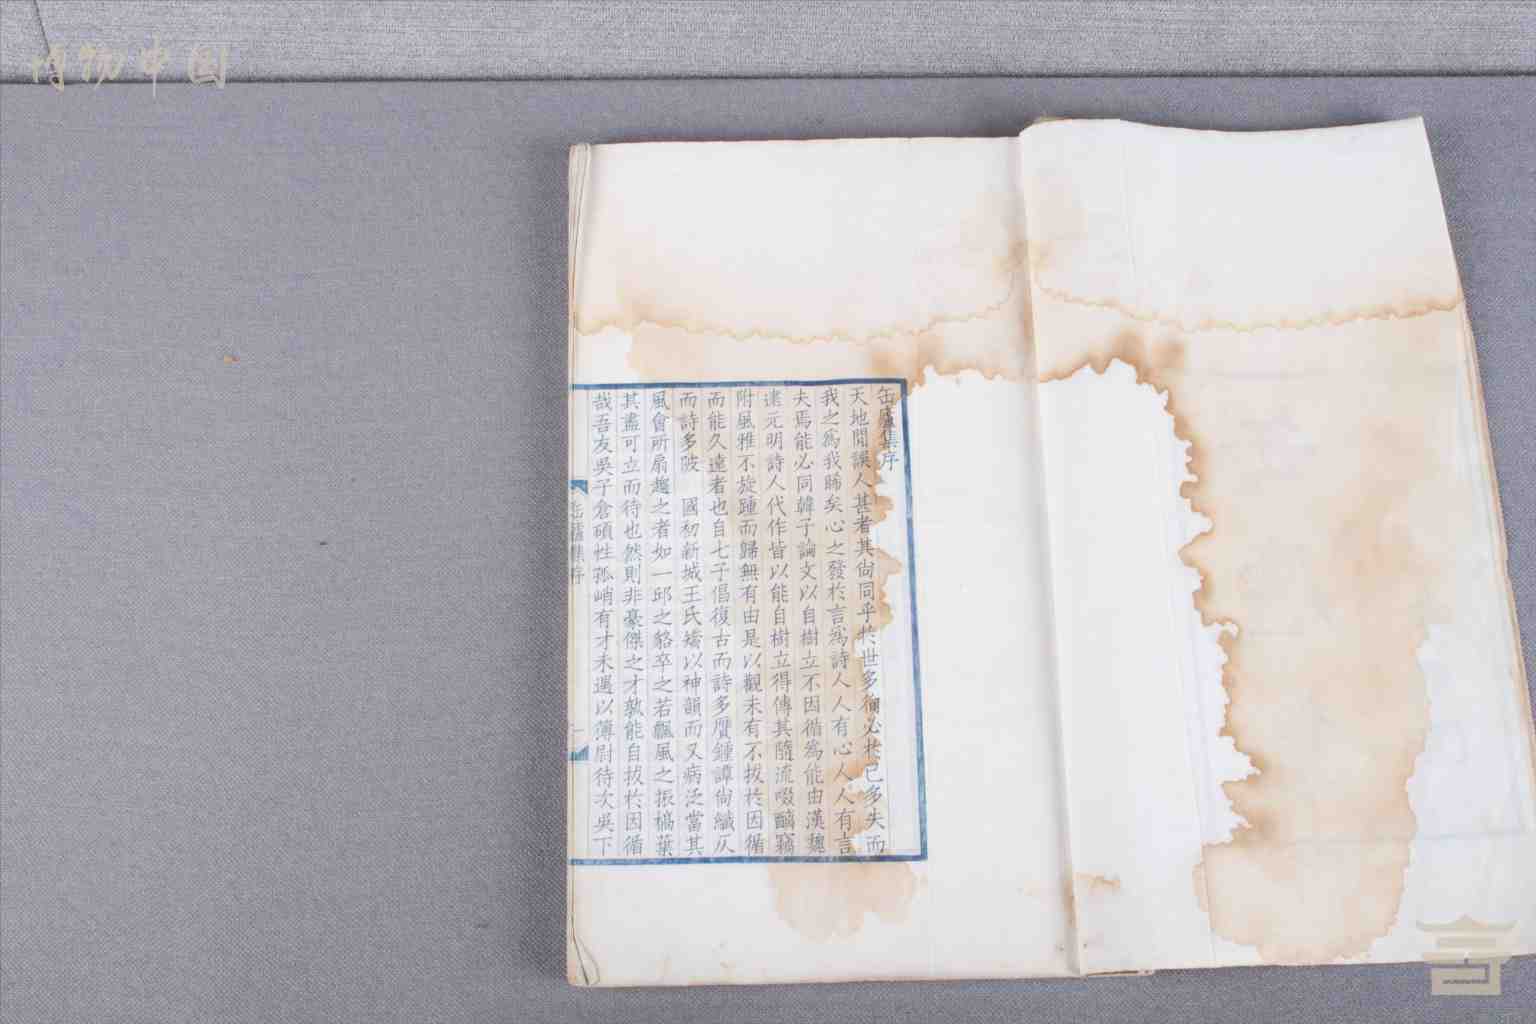 博物中国
缶廬集序
天地間誤人甚者其尙同乎於世多徇必於己多失而
我之爲我晞矣心之發於言爲詩人人有心人人有言
夫焉能必同韓子論文以自樹立不因循爲能由漢魏
逮元明詩人代作皆以能自樹立得傳其隨流啜醨竊
附風雅不旋踵而歸無有由是以觀未有不拔於因循
而能久遠者也自七子倡復古而詩多贋鍾譚尙纖仄
而詩多陂 國初新城王氏矯以神韻而又病泛當其
風會所扇趨之者如一邱之貉卒之若飄風之振槁葉
其盡可立而待也然則非豪傑之才孰能自拔於因循
哉吾友吳子倉碩性孤峭有才未遇以簿尉待次吳下
缶廬集序
一